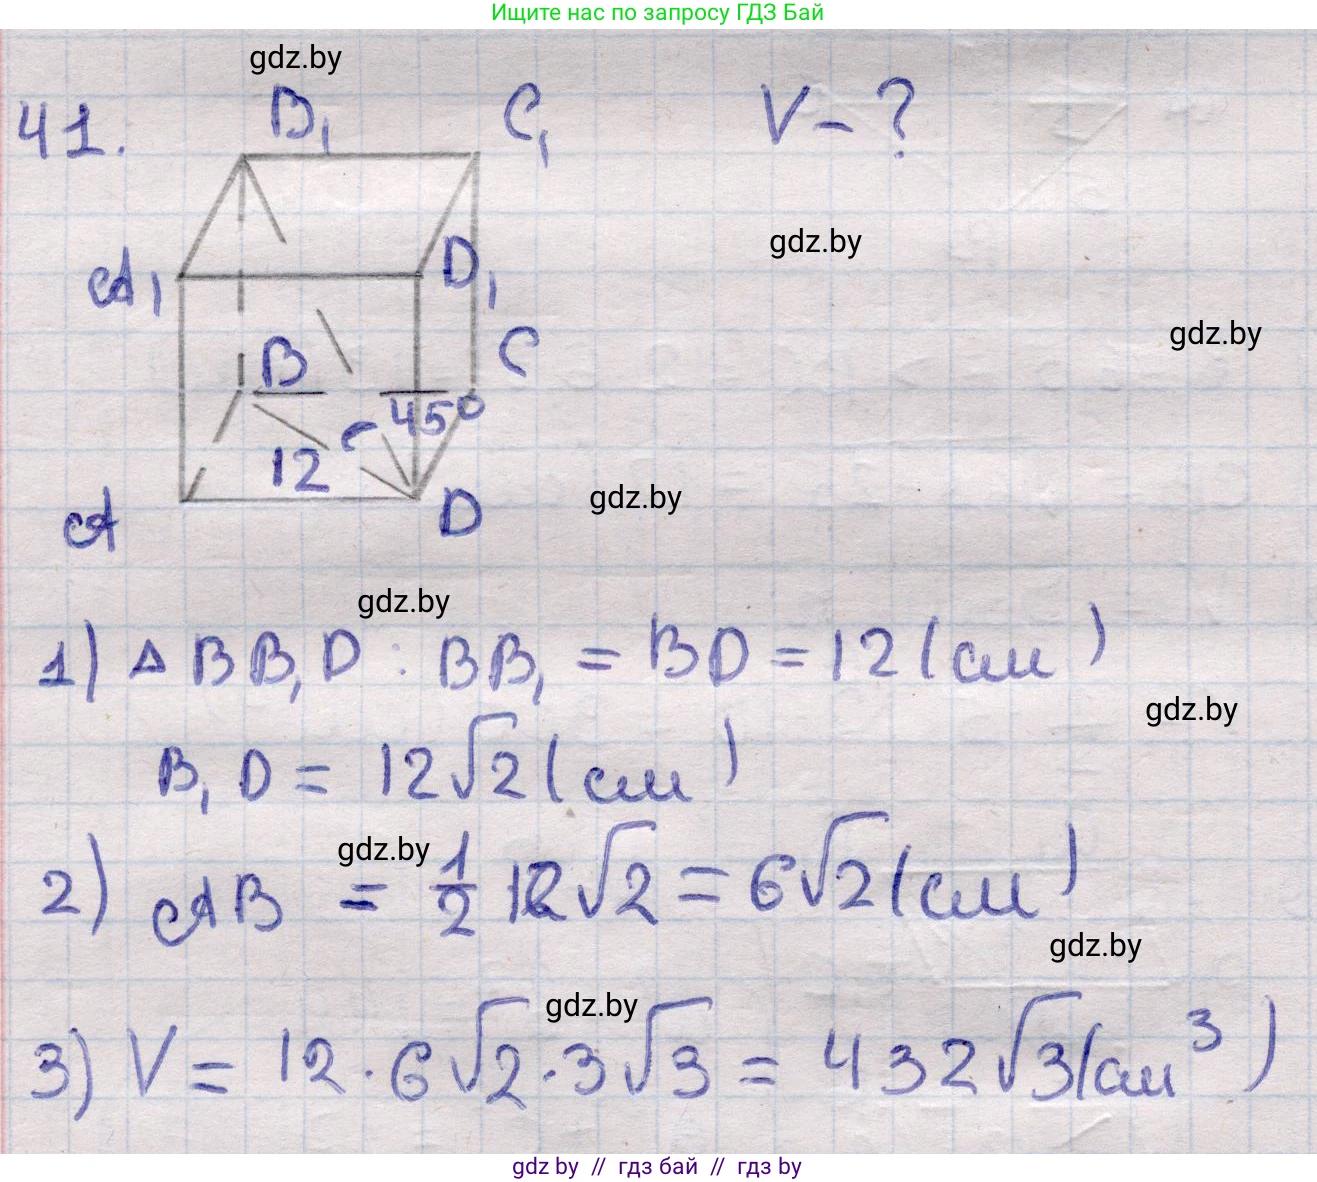 Ищите нас по запросу ГДЗ Бай
gdz.by
41.
B₁
C₁
V - ?
gdz.by
A₁
D₁
gdz.by
B
C
45°
12
gdz.by
A
D
gdz.by
1) △ BB₁D : BB₁ = BD = 12 (см)
gdz.by
B₁D = 12√2 (см)
gdz.by
2) AB = 1/2 12√2 = 6√2 (см)
gdz.by
gdz.by
3) V = 12 · 6√2 · 3√3 = 432√3 (см³)
gdz by // гдз бай // gdz by